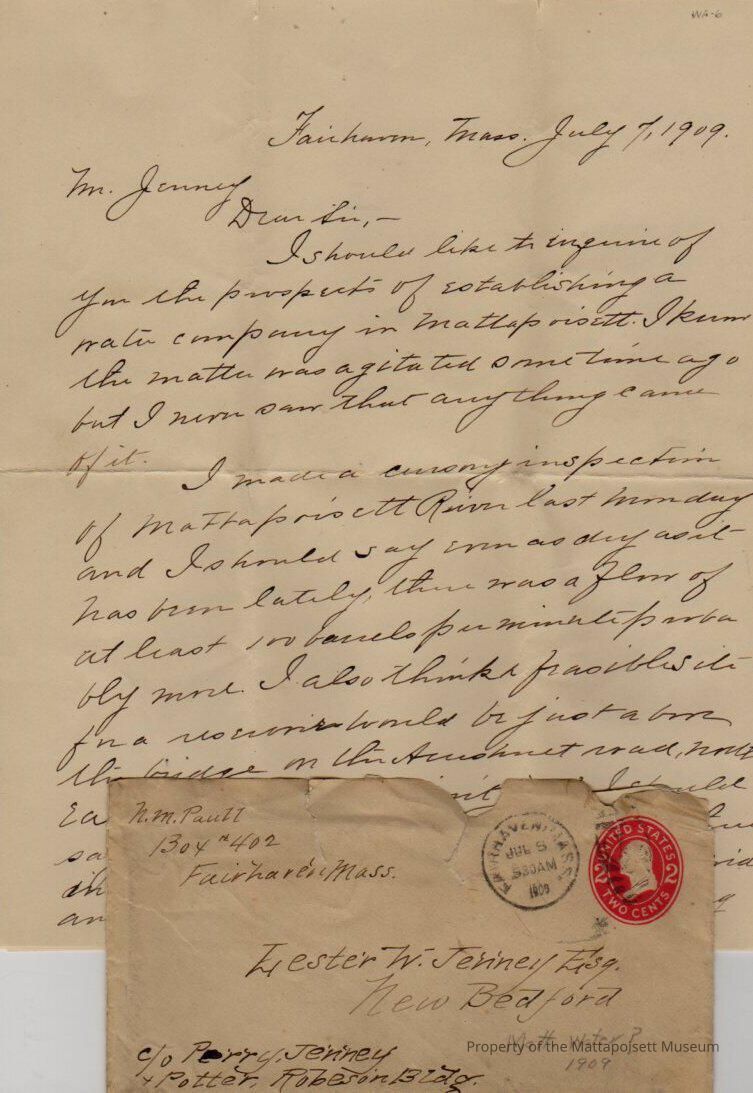 WA-6
Fairhaven, Mass. July 7, 1909.
Mr. Jenney
Dear Sir,-
I should like to inquire of
you the prospects of establishing a
water company in Mattapoisett. I know
the matter was agitated sometime ago
but I never saw that anything came
of it.
I made a cursory inspection
of Mattapoisett River last Monday
and I should say even as dry as it
has been lately, there was a flow of
at least 100 barrels per minute proba
bly more. I also think a feasible site
for a reservoir would be just above
the bridge on the Acushnet road, north
Ea
I should
sa
an
N.M. Paull
Box 402
Fairhaven Mass.
FAIRHAVEN, MASS.
JUL
530AM
1909
UNITED STATES
2 2
TWO CENTS
Lester W. Jenney Esq.
New Bedford
c/o Perry, Jenney
+ Potter, Robeson Bldg.
Matt. Water
1909
Property of the Mattapoisett Museum